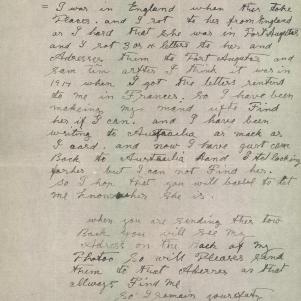 = I was in England when ther toke
Places. and I rot to her from England
as I hard that she was in Port Augusta
and I rot 3 or 4 letters to her and
Adresses them to Port Augusta and
sam tim after I think it was in
1917 when I got the letters
to me in Frances. So I have been
makeing my mand upto Find
her if I can. and I haves been
writing to Australia as mach as
I card. and now I have just com
Back to Australia and looking
for her but I can not Find her.
So I hop that you will be to let
me know wher She is.
when you are sending ther tow
Back you will see my
Adress on the Back of my
Photos So will Pleases send
them to that Aderres as that
allways Find Me
So I remain yours